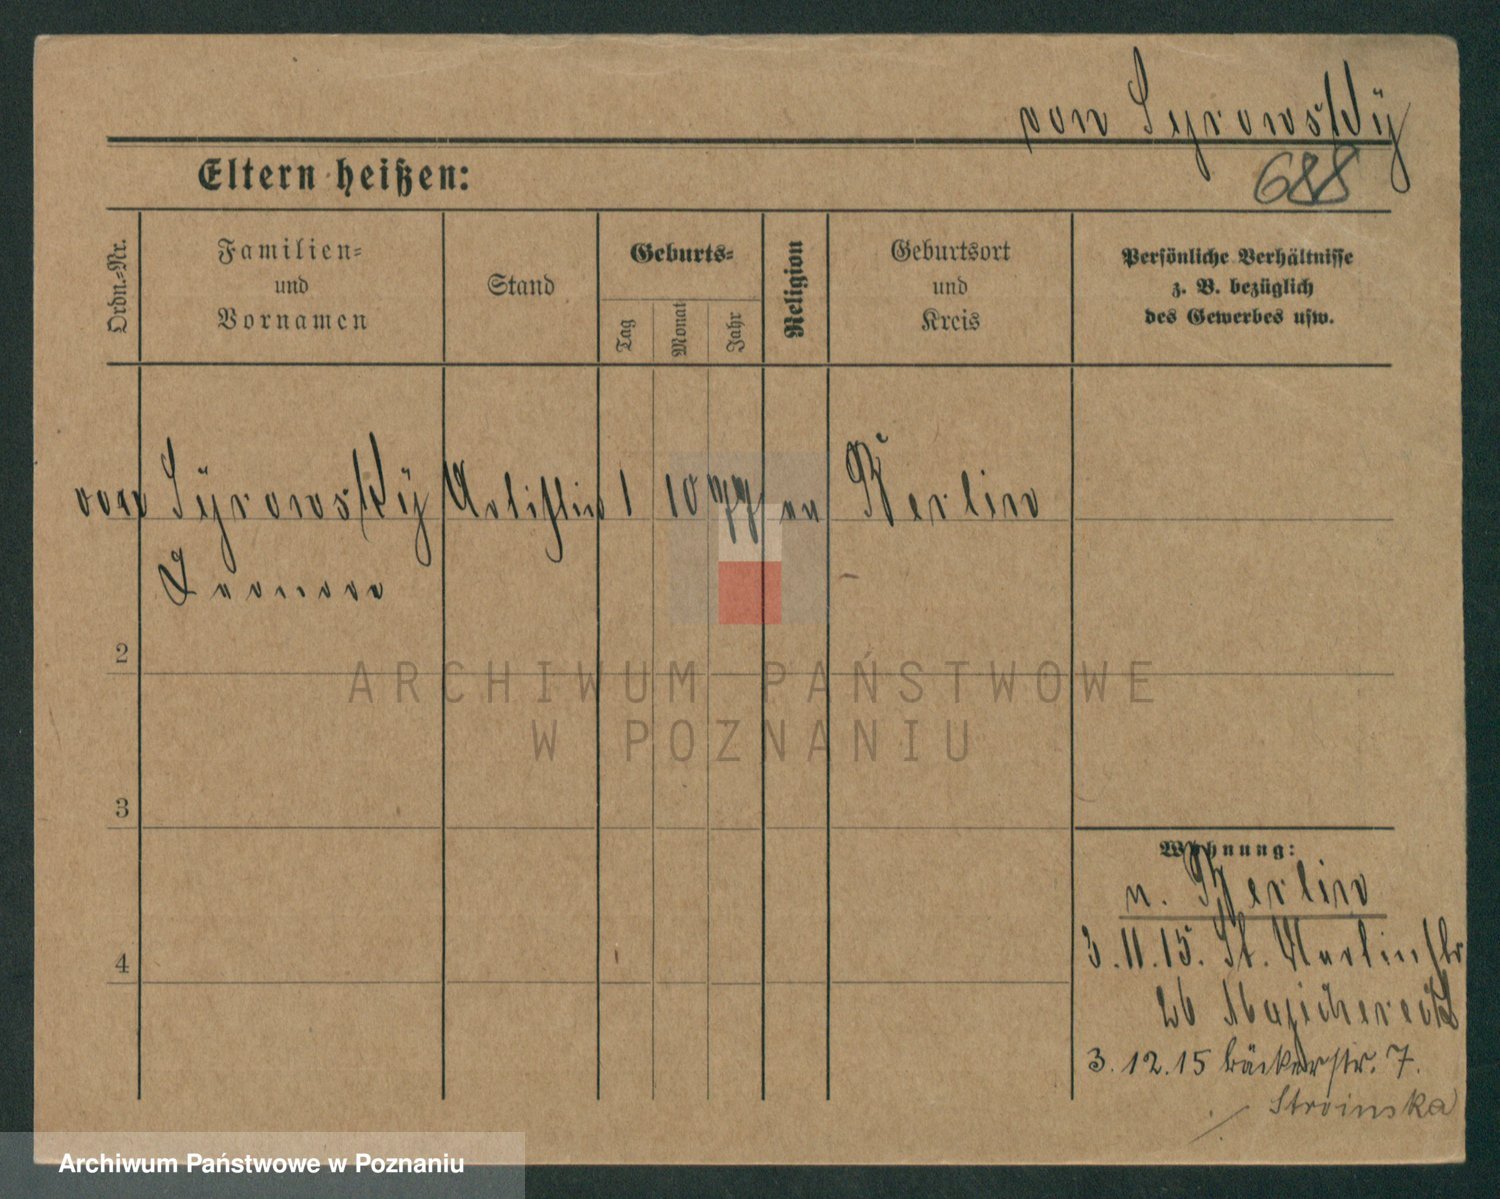 von Syrowskÿ
688
Eltern heißen:
Ordn.-Nr.
Familien-
und
Vornamen
Stand
Geburts-
Tag
Monat
Jahr
Religion
Geburtsort
und
Kreis
Persönliche Verhältnisse
z. B. bezüglich
des Gewerbes usw.
von Sÿrowskÿ Artistin 1 10 77 ev Berlin
2
3
4
Wohnung:
n. Berlin
3.11.15. St. Martinstr
26
3.12.15 Bäckerstr. 7.
Stroinska
ARCHIWUM PAŃSTWOWE
W POZNANIU
Archiwum Państwowe w Poznaniu